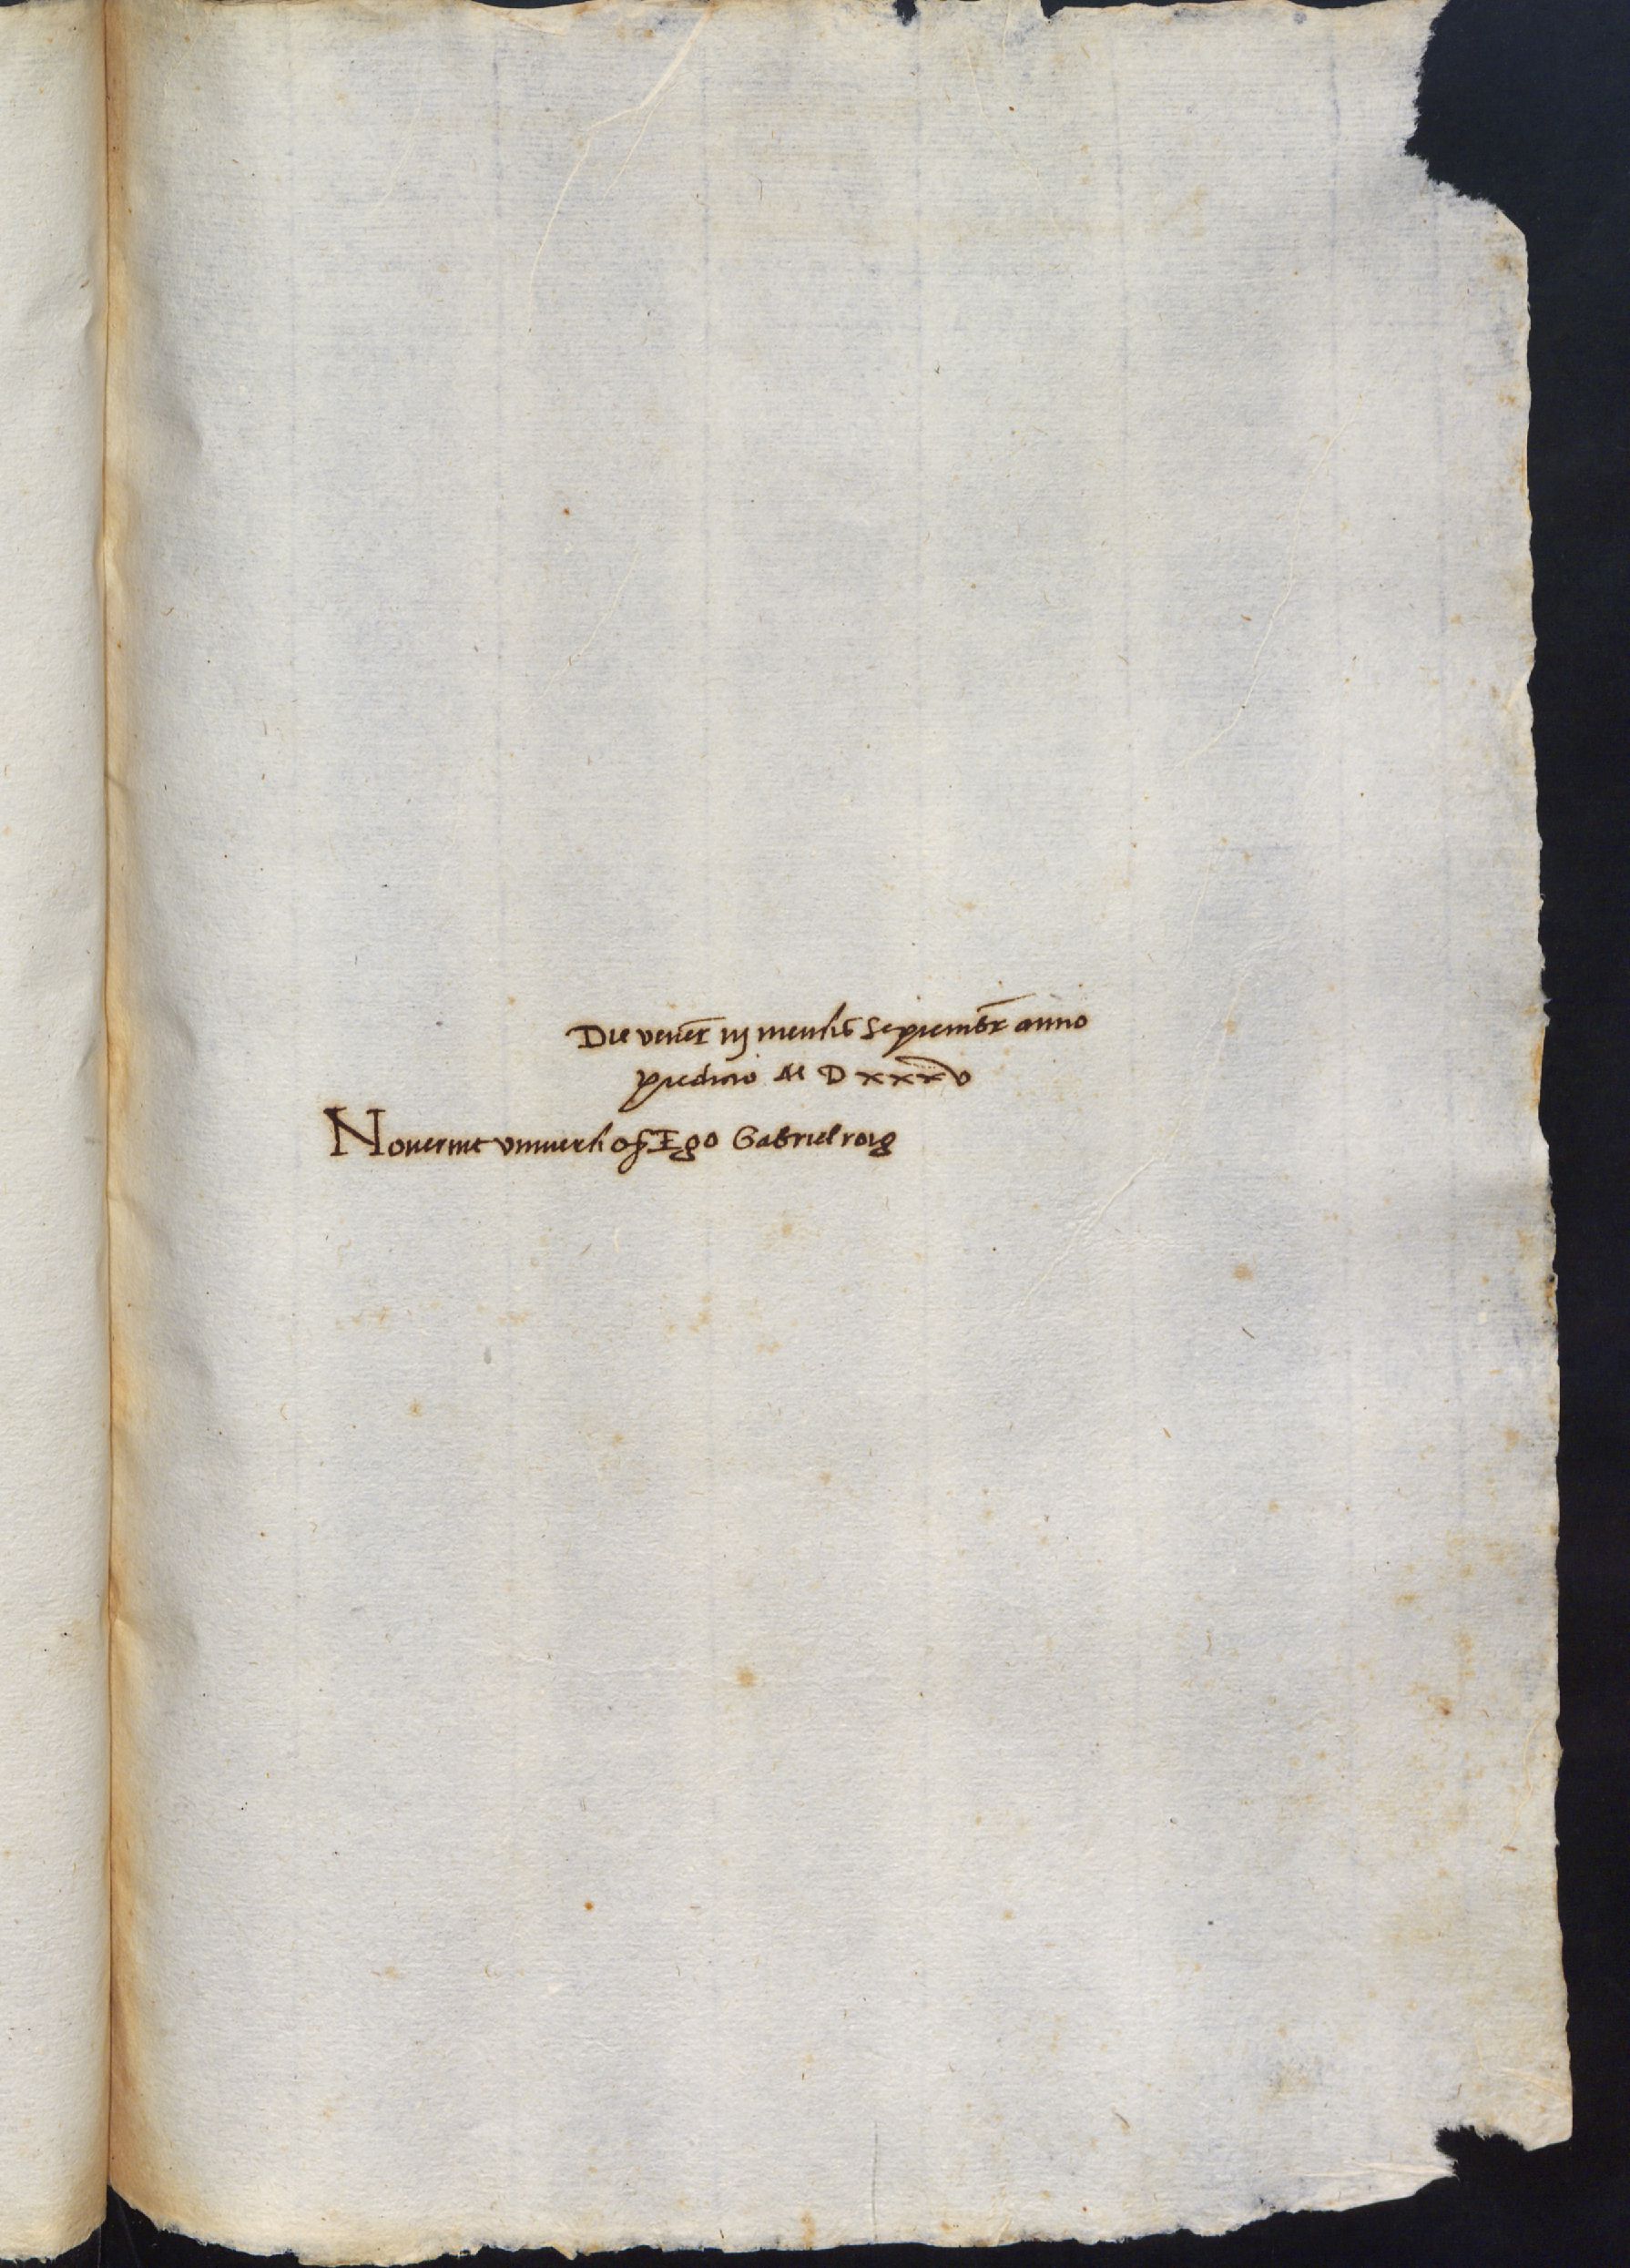 Die veneṝ iij mensis Septembr̄ anno
predicto M D xxxv
Noverint universi q̄ Ego Gabriel roig